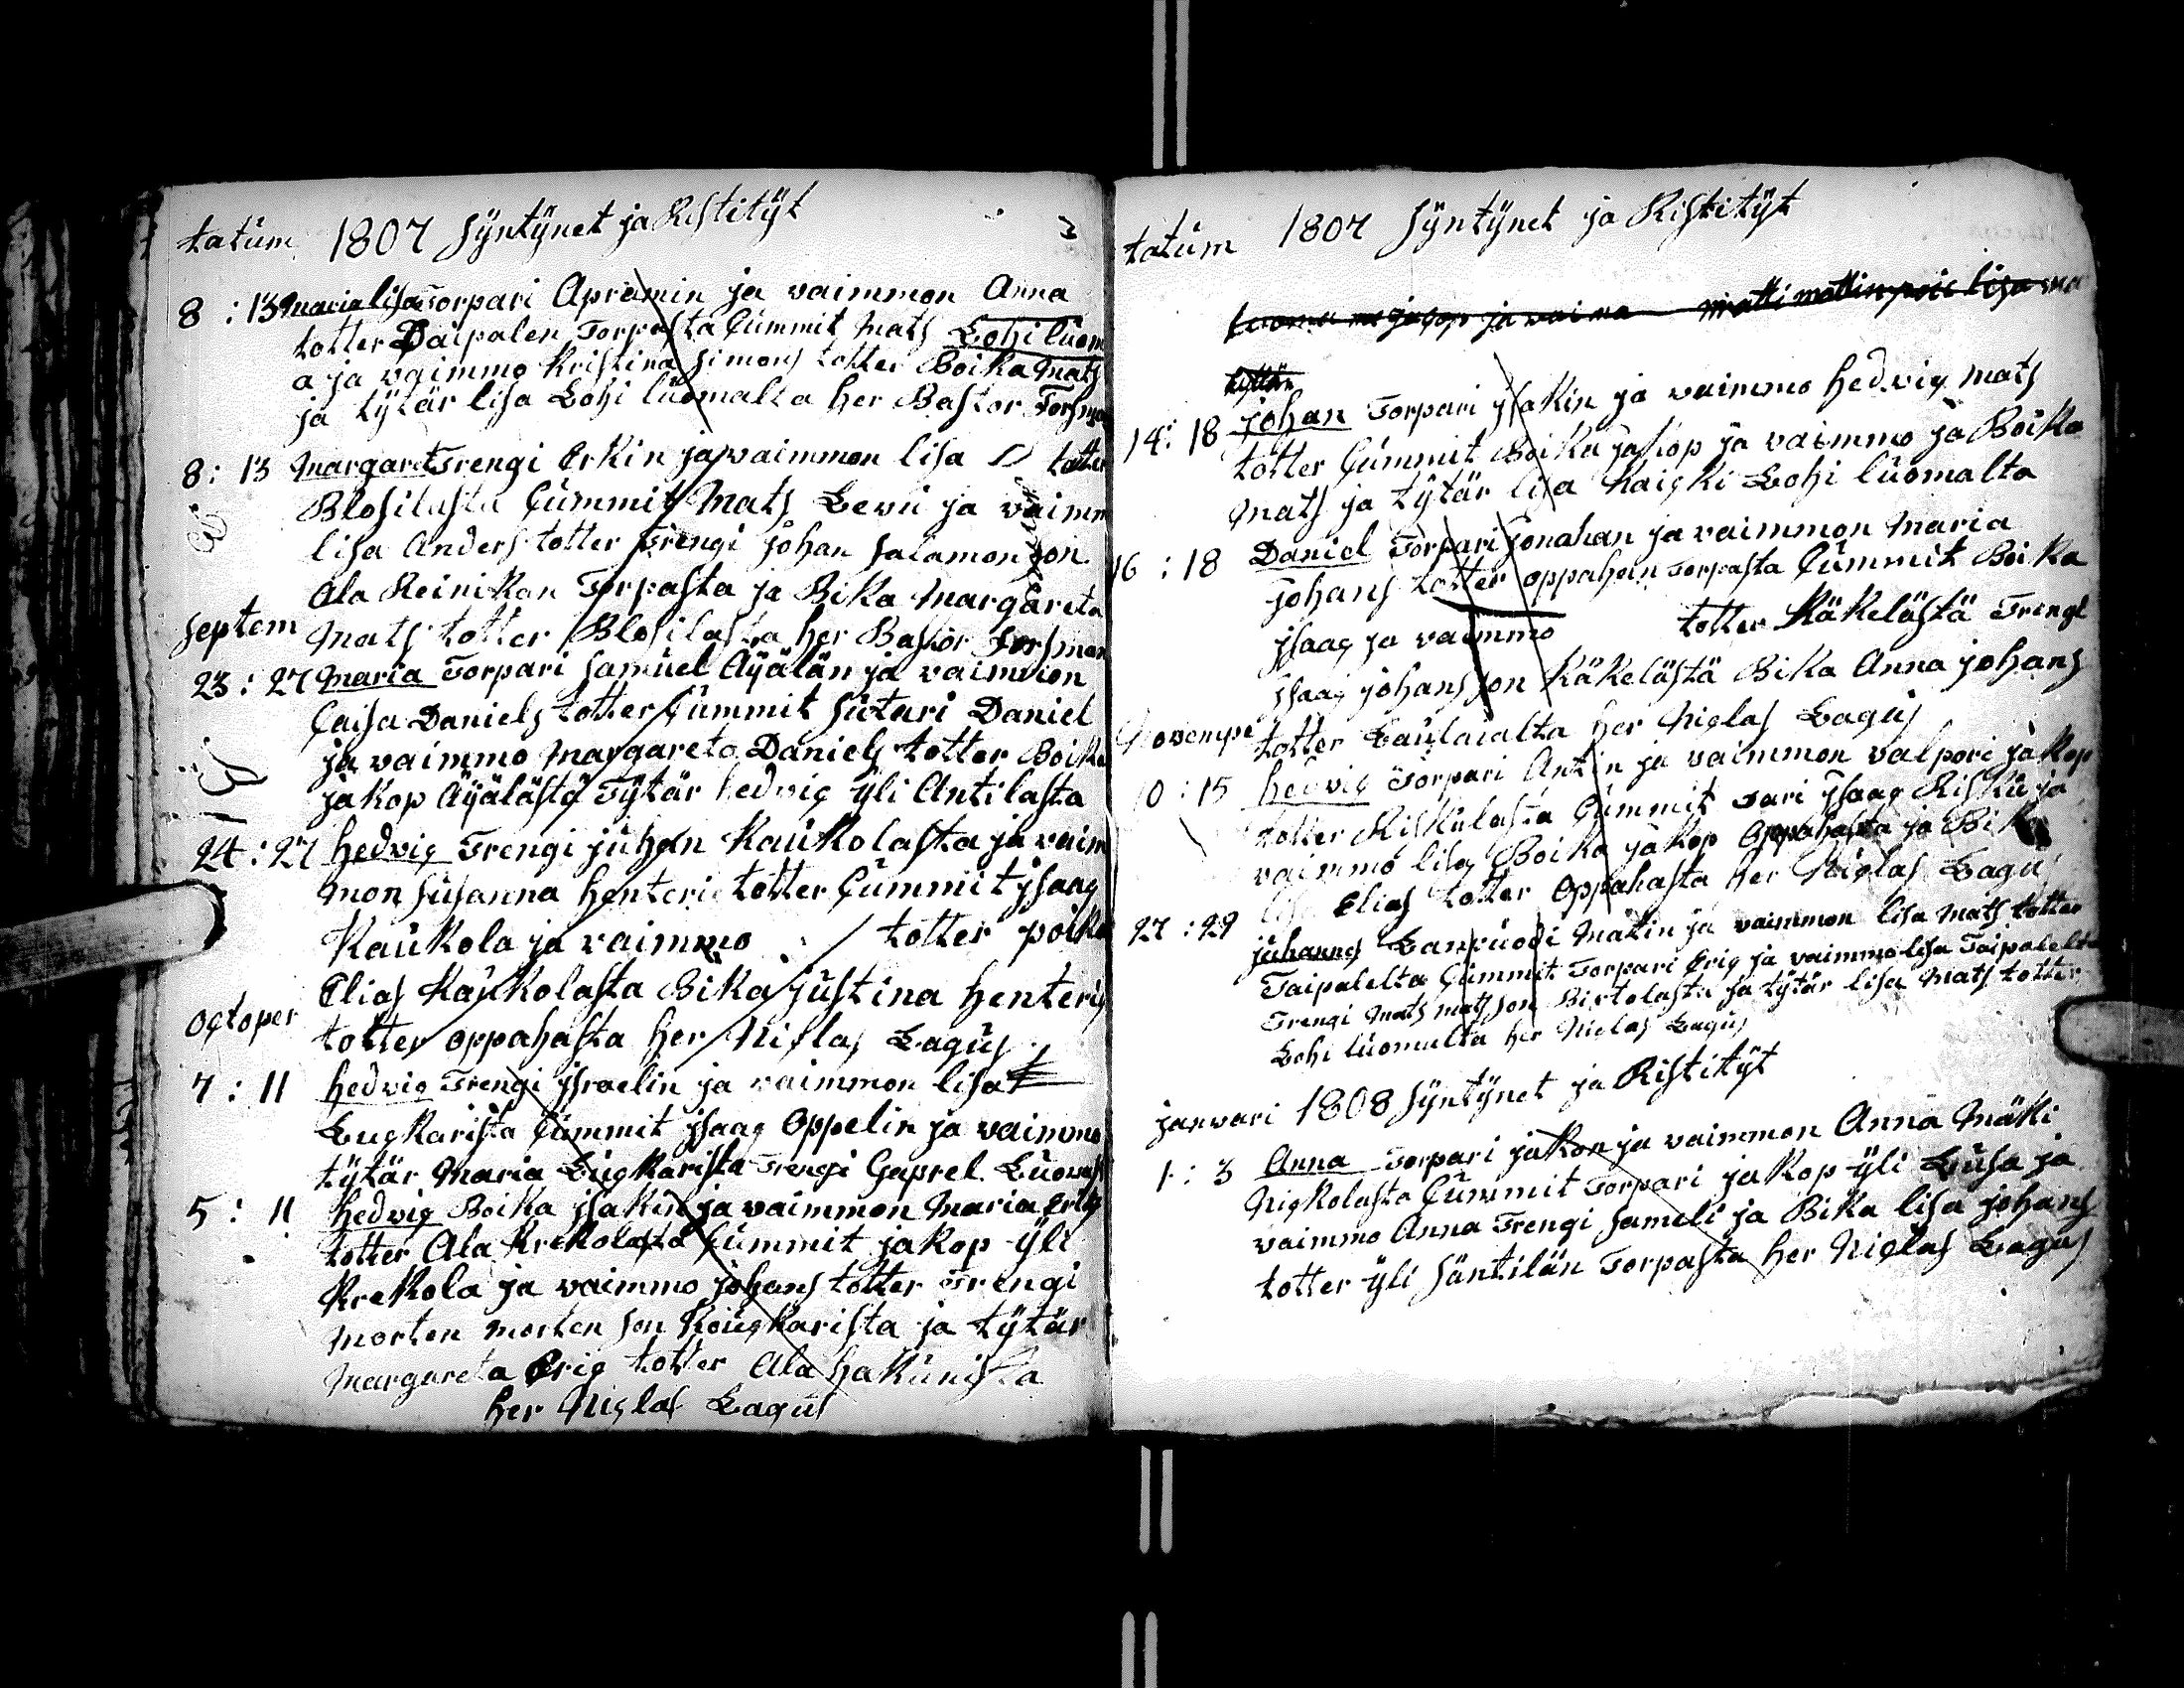 tatum 1807 Syntynet ja Ristityt
8 : 13 maria lisa Torpari Apramin ja vaimmon Anna
totter Daipalen Torpasta Cummit Mats Lohi luom
a ja vaimmo Kristina Simons totter Boika Mats
ja tytär lisa Lohi luomalta her Bastor Forsman
8 : 13 Margaret Trengi Erkin ja vaimmon lisa totter
Blosilasta Cummit Mats Levii ja vaimm
lisa Anders totter Trengi johan Salamon son
Ala Reinikan Torpasta ja Bika Margareta
Septem Mats totter Blosilasta her Bastor Forsman
23 : 27 Maria Torpari Samuel Äyälän ja vaimmon
Caisa Daniels totter Cummit Sutari Daniel
ja vaimmo Margareta Daniels totter Boika
jakop Äyälästä Tytär hedvig yli Antilasta
24 : 27 hedvig Trengi juhan Kaukolasta ja vaim
mon Susanna henteri totter Cummit jsaag
Kaukola ja vaimmo totter poika
Elias Kaukolasta Bika justina henteris
octoper totter oppahasta her Niklas Lagus
7 : 11 hedvig Trengi jsraelin ja vaimmon lisa
Lugkarista Cummit jsaag Oppelin ja vaimmo
tytär Maria Lugkarista Trengi Gaprel
5 : 11 hedvig Boika jsakin ja vaimmon Maria Erig
totter Ala Krekolasta Cummit jakop yli
Krekola ja vaimmo johans totter Trengi
Morten Morten Son Kougkarista ja tytär
Margareta Erig totter Ala hakunista
her Niglas Lagus
3
tatum 1807 Syntynet ja Ristityt
jagop ja vaima matti mattinpoic lisa
tyttär
14 : 18 johan Torpari jsakin ja vaimmo hedvig Mats
totter Cummit Boika jakop ja vaimmo ja Boika
Mats ja tytär lisa Kaigki Lohi luomalta
16 : 18 Daniel Torpari jonahan ja vaimmon Maria
johans totter oppahan Torpasta Cummit Boika
jsaag ja vaimmo totter Käkelästä Trengi
jsaag johans son Käkelästä Bika Anna johans
Novempe totter Laulaialta her Niglas Lagus
10 : 15 hedvig Torpari Antin ja vaimmon valpori jakop
totter Riskulasta Cummit Tari jsaag Risku ja
vaimmo lisa Boika jakop Oppahasta ja Bik
lisa Elias totter Oppahasta her Niglas Lagus
27 : 29 juhanns Matin ja vaimmon lisa Mats totter
Taipalelta Cummit Torpari Erig ja vaimmo lisa Taipalelta
Trengi Mats Mats son Birtolasta ja tytär lisa Mats totter
Lohi luomalta her Niclas Lagus
januari 1808 Syntynet ja Ristityt
1 : 3 Anna Torpari jakon ja vaimmon Anna Mäki
Nigkolasta Cummit Torpari jakop yli Lusa ja
vaimmo Anna Trengi Sameli ja Bika lisa johans
totter yli Säntilän Torpasta her Niglas Lagus